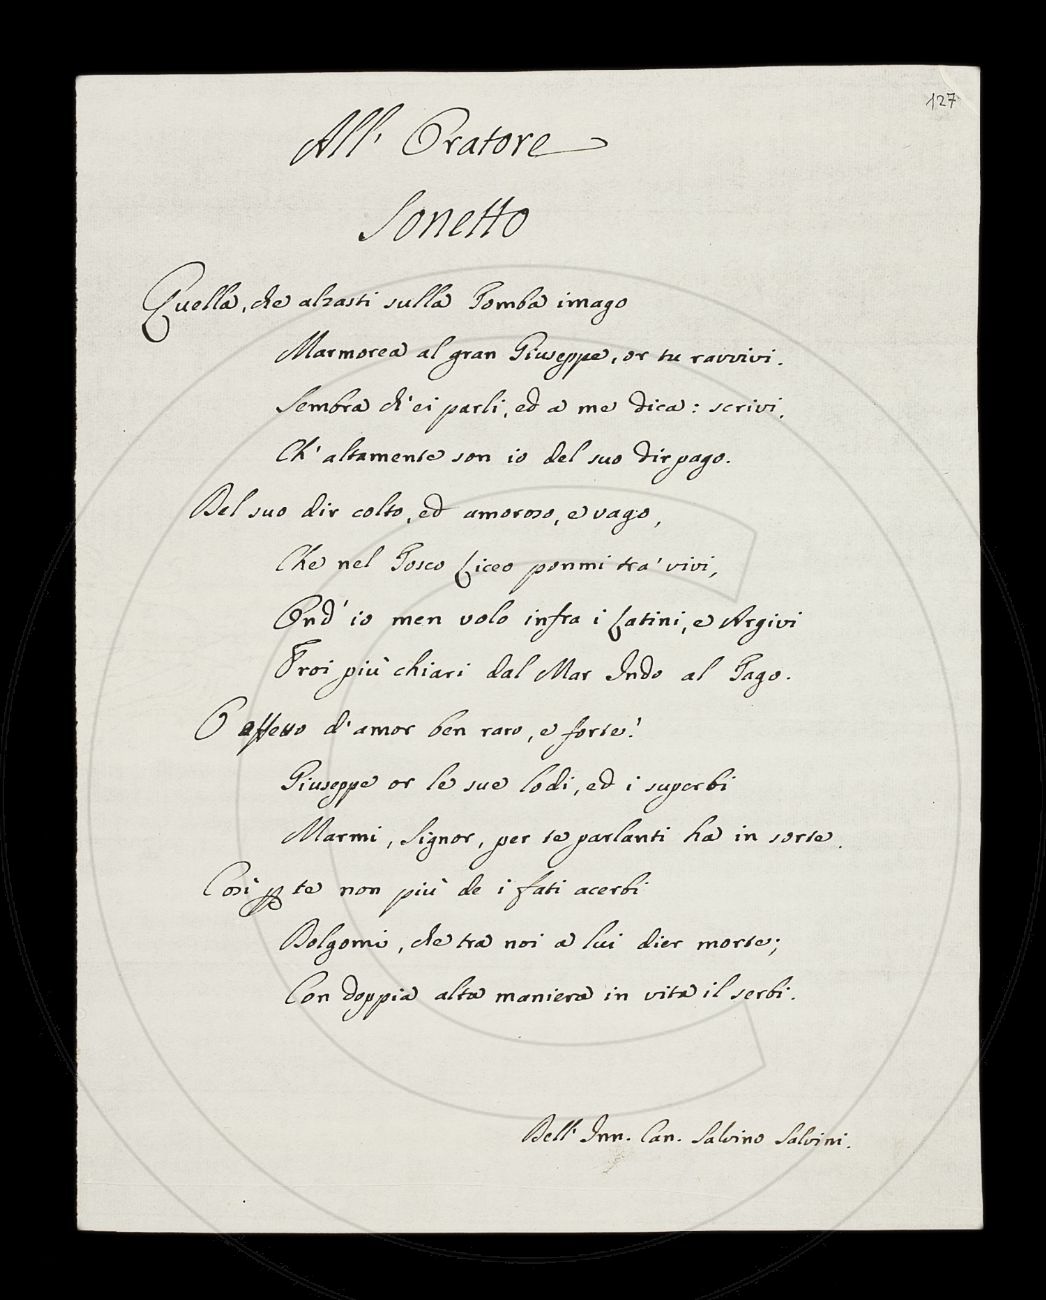 127
All' Oratore
Sonetto
Quella, che alzasti sulla Tomba imago
Marmorea al gran Giuseppe, or tu ravvivi.
Sembra ch'ei parli, ed a me dica: scrivi,
Ch' altamente son io del suo dir pago.
Del suo dir colto, ed amoroso, e vago,
Che nel Tosco Liceo ponmi tra' vivi,
Ond' io men volo infra i Latini, e Argivi
Eroi più chiari dal Mar Indo al Tago.
O affetto d'amor ben raro, e forte!
Giuseppe or le sue lodi, ed i superbi
Marmi, Signor, per te parlanti ha in sorte.
Così te non più de i fati acerbi
che tra noi a lui dier morte;
Con doppia alta maniera in vita il serbi.
Dell' Inn. Can. Salvino Salvini.